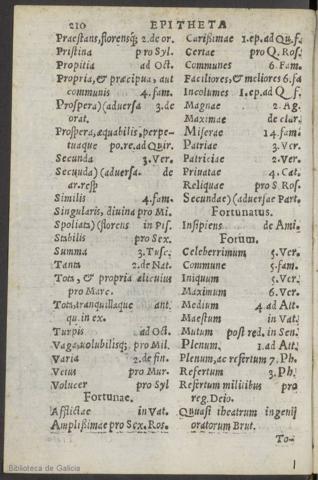 210 EPITHETA
Præstans, florensq; 2.de or.
Pristina pro Syl.
Propitia ad Oct.
Propria, & præcipua, aut
communis 4.fam.
Prospera)(aduersa 3.de
orat.
Prospera, æquabilis, perpe-
tuaque po.re.ad Quir.
Secunda 3.Ver.
Secuuda)(aduersa. de
ar.resp
Similis 4.fam.
Singularis, diuina pro Mi.
Spoliata)(florens in Pis.
Stabilis pro Sex.
Summa 3.Tusc.
Tanta 2.de Nat.
Tota, & propria alicuius
pro Marc.
Tota, tranquillaque ant.
qu.in ex.
Turpis ad Oct.
Vaga, uolubilisq; pro Mil.
Varia 2.de fin.
Vetus pro Mur.
Volucer pro Syl
Fortunæ.
Afflictæ in Vat.
Amplißimæ pro Sex.Ros.
Carißimæ 1.ep.ad Qu.f.
Certæ pro Q.Ros.
Communes 6.Fam.
Faciliores, & meliores 6.fa
Incolumes 1.ep.ad Q.f.
Magnæ 2.Ag.
Maximæ de clar.
Miseræ 14.fam.
Patriæ 3.Ver.
Patriciæ 2.Ver.
Priuatæ 4.Cat.
Reliquæ pro S Ros.
Secundæ)(aduersæ Part.
Fortunatus.
Insipiens de Ami.
Forum.
Celeberrimum 5.Ver.
Commune 5.fam.
Iniquum 5.Ver.
Maximum 6.Ver.
Medium 4.ad Att.
Mæstum in Vat.
Mutum post red.in Sen.
Plenum, 1.ad Att.
Plenum, ac refertum 7.Ph.
Refertum 3.Ph.
Refertum militibus pro
reg.Deio.
Quasi theatrum ingenij
oratorum Brut.
To-
Biblioteca de Galicia